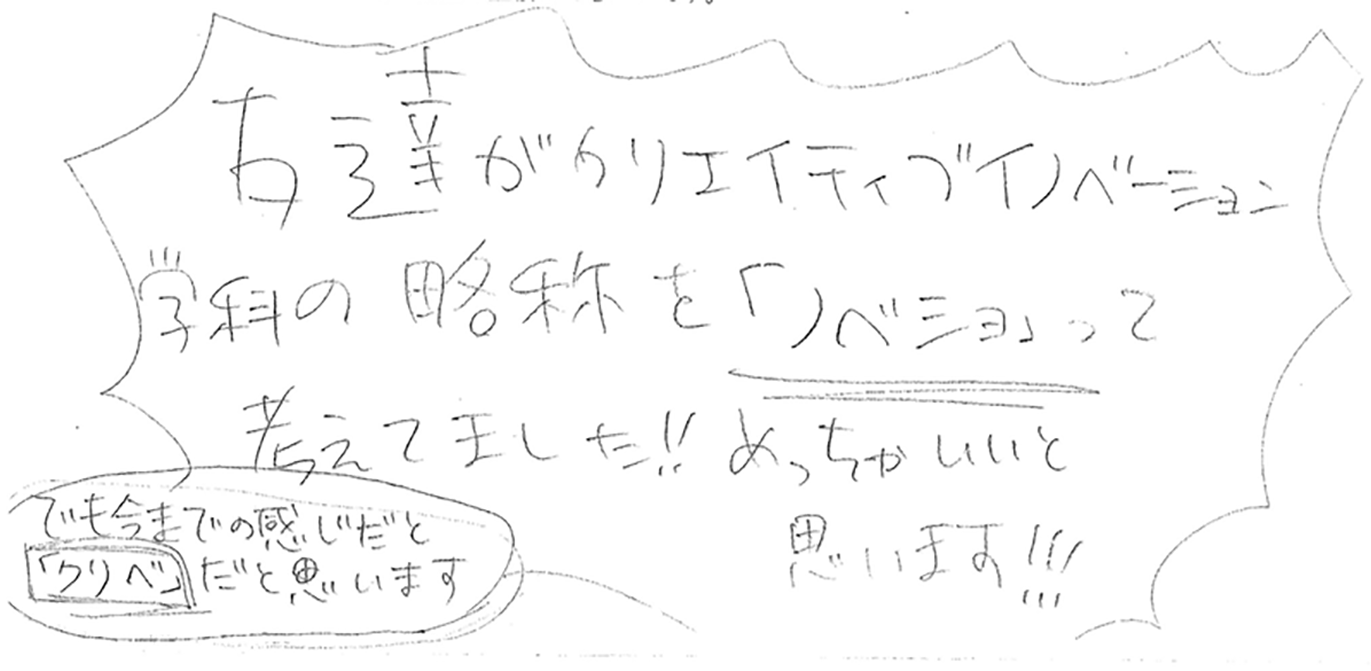 友達がクリエイティブイノベーション
学科の略称を「ノベショ」って
考えてました!! めっちゃいいと
思います!!!
でも今までの感じだと
「クリベ」だと思います